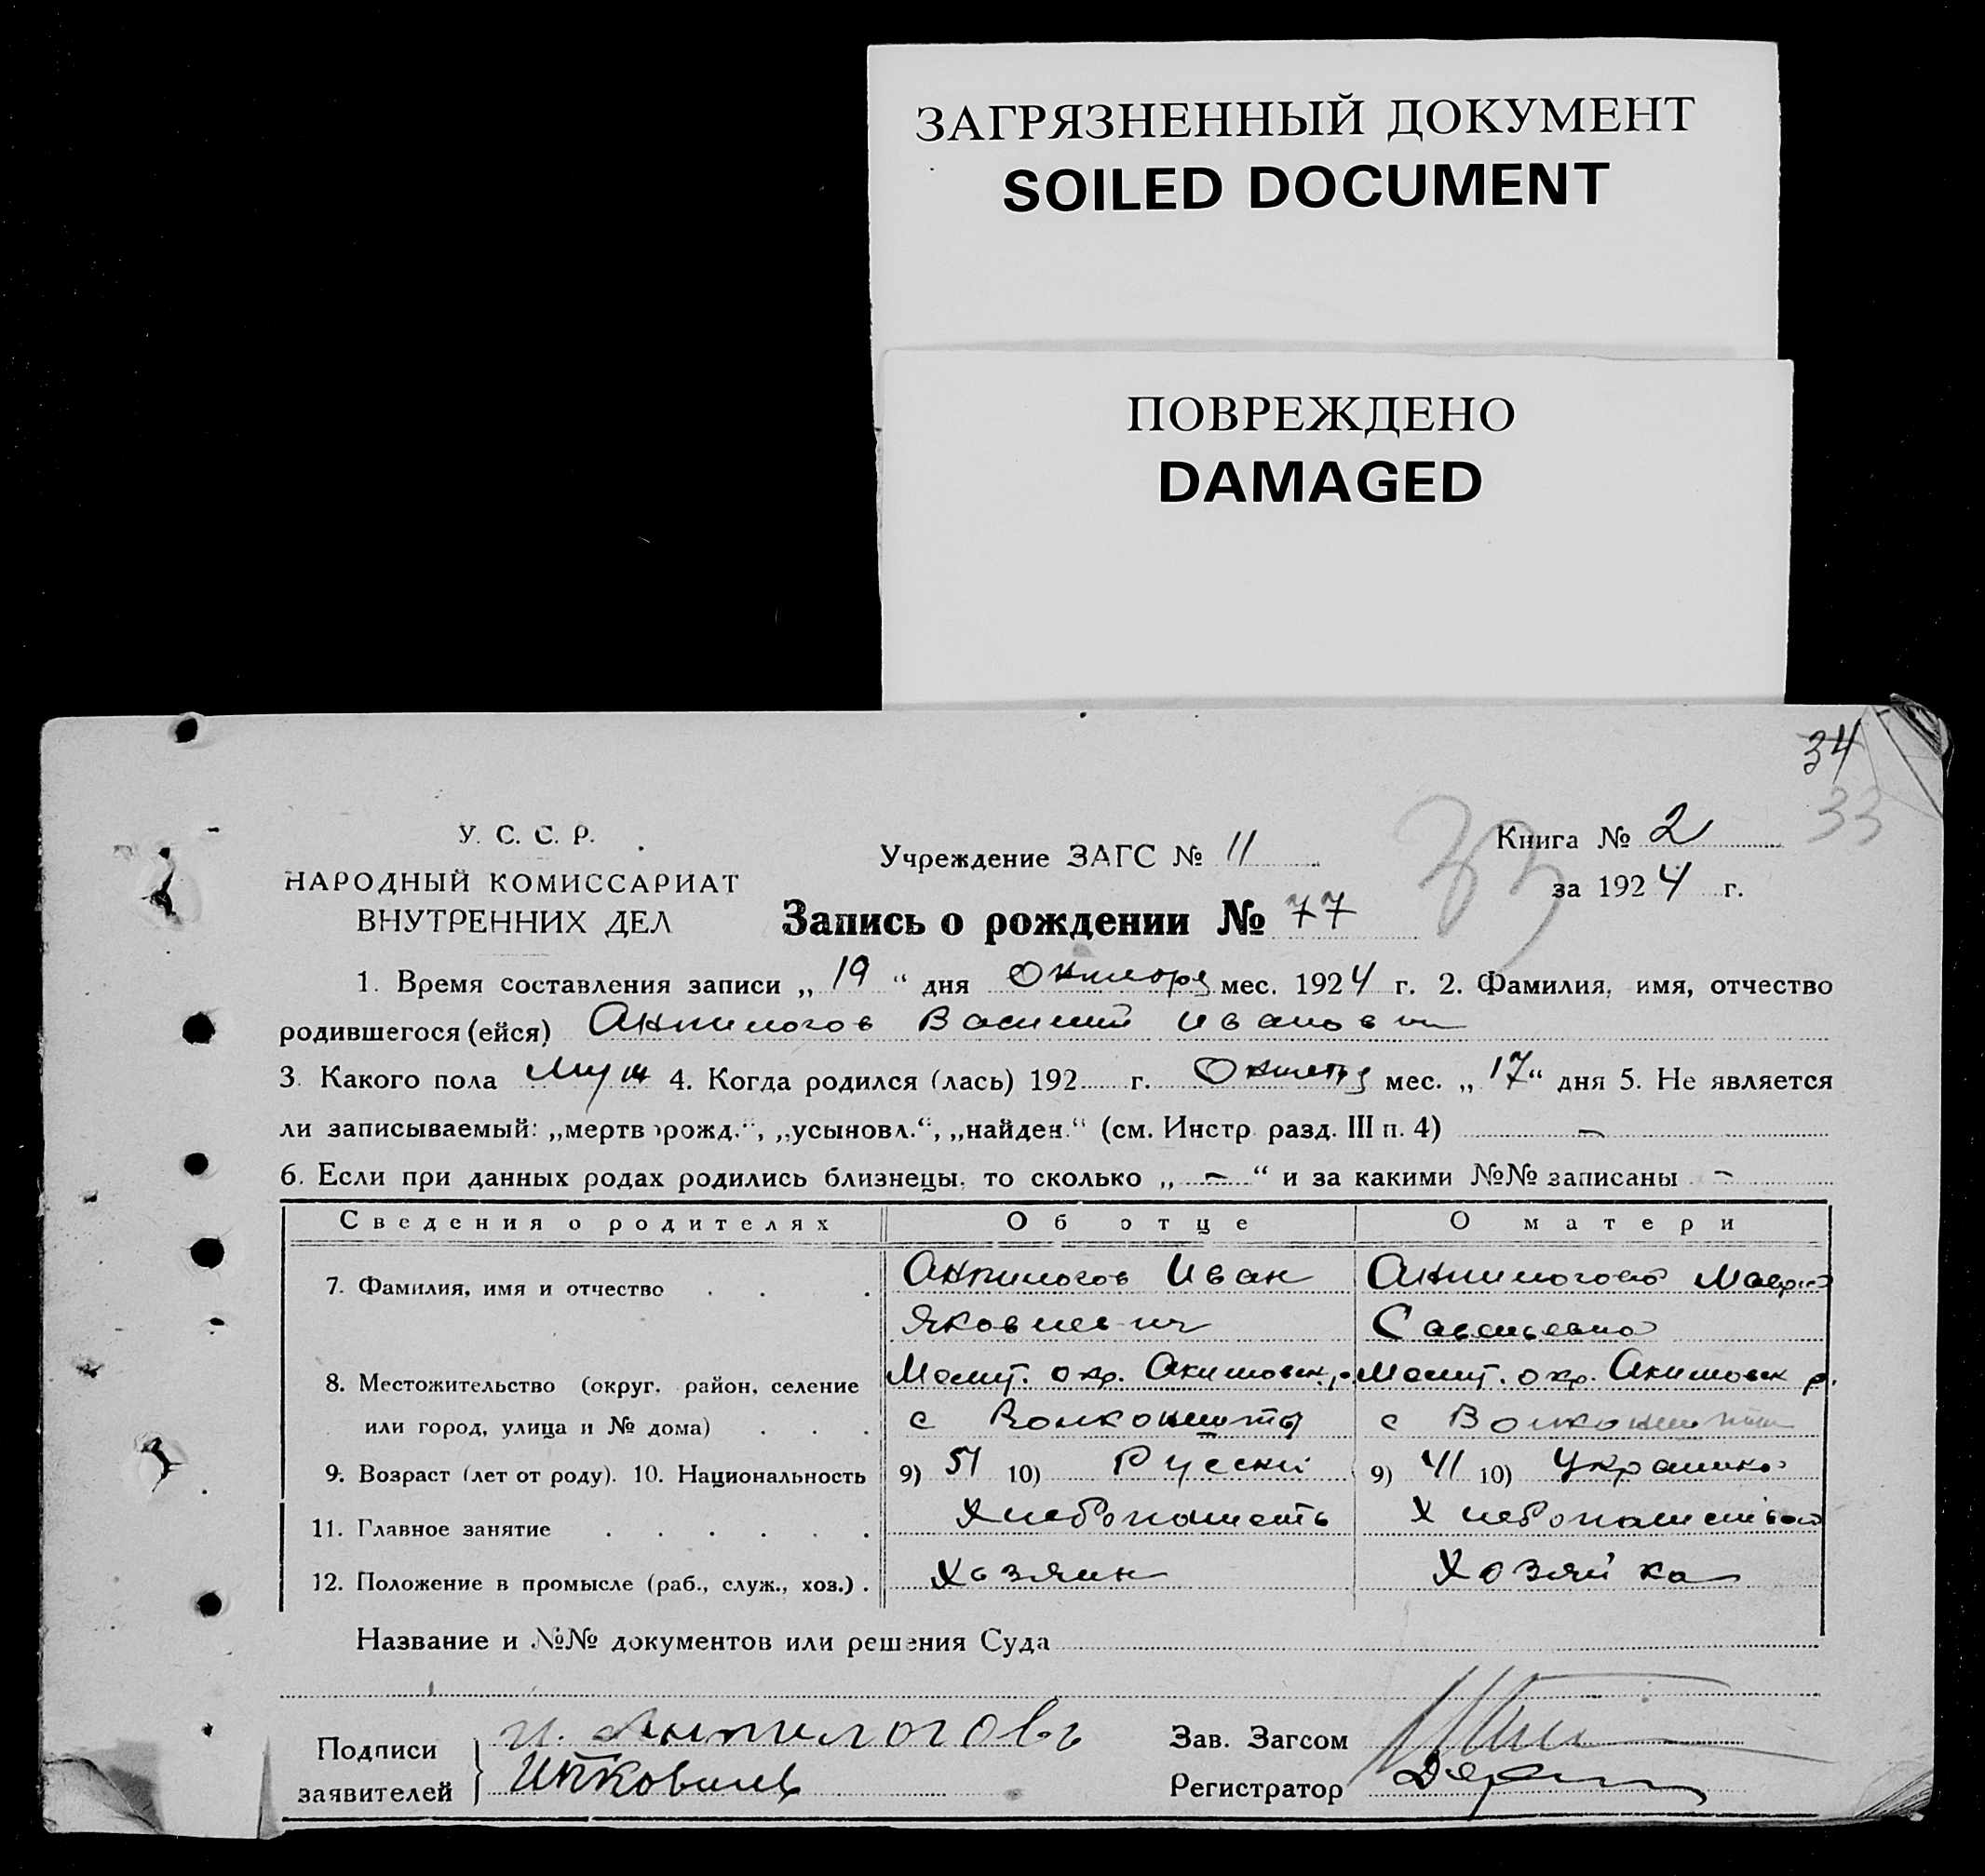 ЗАГРЯЗНЕННЫЙ ДОКУМЕНТ
SOILED DOCUMENT
ПОВРЕЖДЕНО
DAMAGED
34
33
У. С. С. Р.
НАРОДНЫЙ КОМИССАРИАТ
ВНУТРЕННИХ ДЕЛ
Учреждение ЗАГС № 11
Книга № 2
за 1924 г.
33
Запись о рождении № 77
1. Время составления записи „19“ дня Октября мес. 1924 г. 2. Фамилия, имя, отчество
родившегося (ейся) Анпилогов Василий Иванович
3. Какого пола Муж 4. Когда родился (лась) 192 г. Октября мес. „17“ дня 5. Не является
ли записываемый: „мертворожд.“, „усыновл.“, „найден.“ (см. Инстр. разд. III п. 4) –
6. Если при данных родах родились близнецы, то сколько „–“ и за какими №№ записаны –
Сведения о родителях Об отце О матери
7. Фамилия, имя и отчество . . . Анпилогов Иван Анпилогова Мария
Яковлевич Савельевна
8. Местожительство (округ, район, селение Мелит. окр. Акимовск. р. Мелит. окр. Акимовск р.
или город, улица и № дома) . . . с с
9. Возраст (лет от роду). 10. Национальность 9) 51 10) Русский 9) 41 10) Украинка
11. Главное занятие . . . . . . Хлебопашеств Хлебопашество
12. Положение в промысле (раб., служ., хоз.) . Хозяин Хозяйка
Название и №№ документов или решения Суда
Подписи
заявителей
И. Анпилоговъ
Зав. Загсом
Регистратор